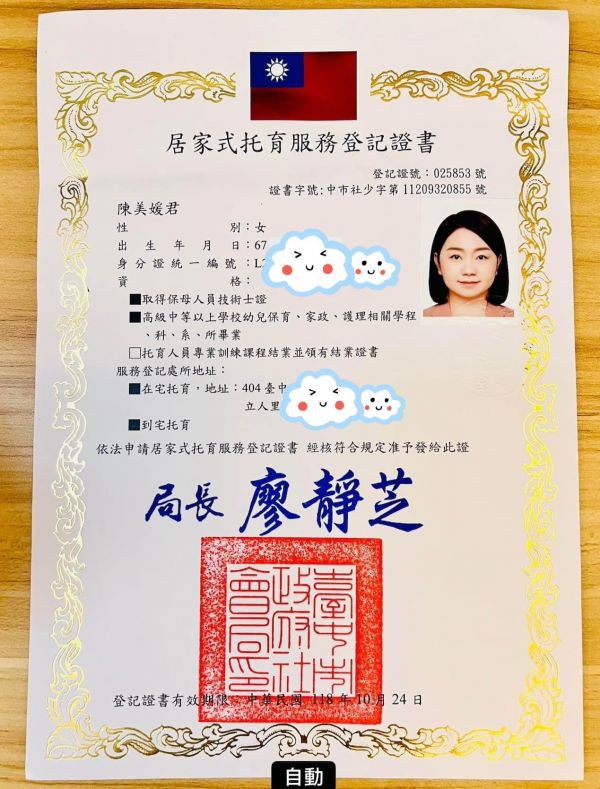 居家式托育服務登記證書
登記證號：025853 號
證書字號:中市社少字第 11209320855 號
陳美媛君
性別：女
出生年月日：67
身分證統一編號：L2
資格：
■取得保母人員技術士證
■高級中等以上學校幼兒保育、家政、護理相關學程
、科、系、所畢業
□托育人員專業訓練課程結業並領有結業證書
服務登記處所地址：
■在宅托育，地址：404 臺中
立人里
■到宅托育
依法申請居家式托育服務登記證書 經核符合規定准予發給此證
局長 廖靜芝
臺中市
政府社
會局印
登記證書有效期限：中華民國 118 年 10 月 24 日
自動